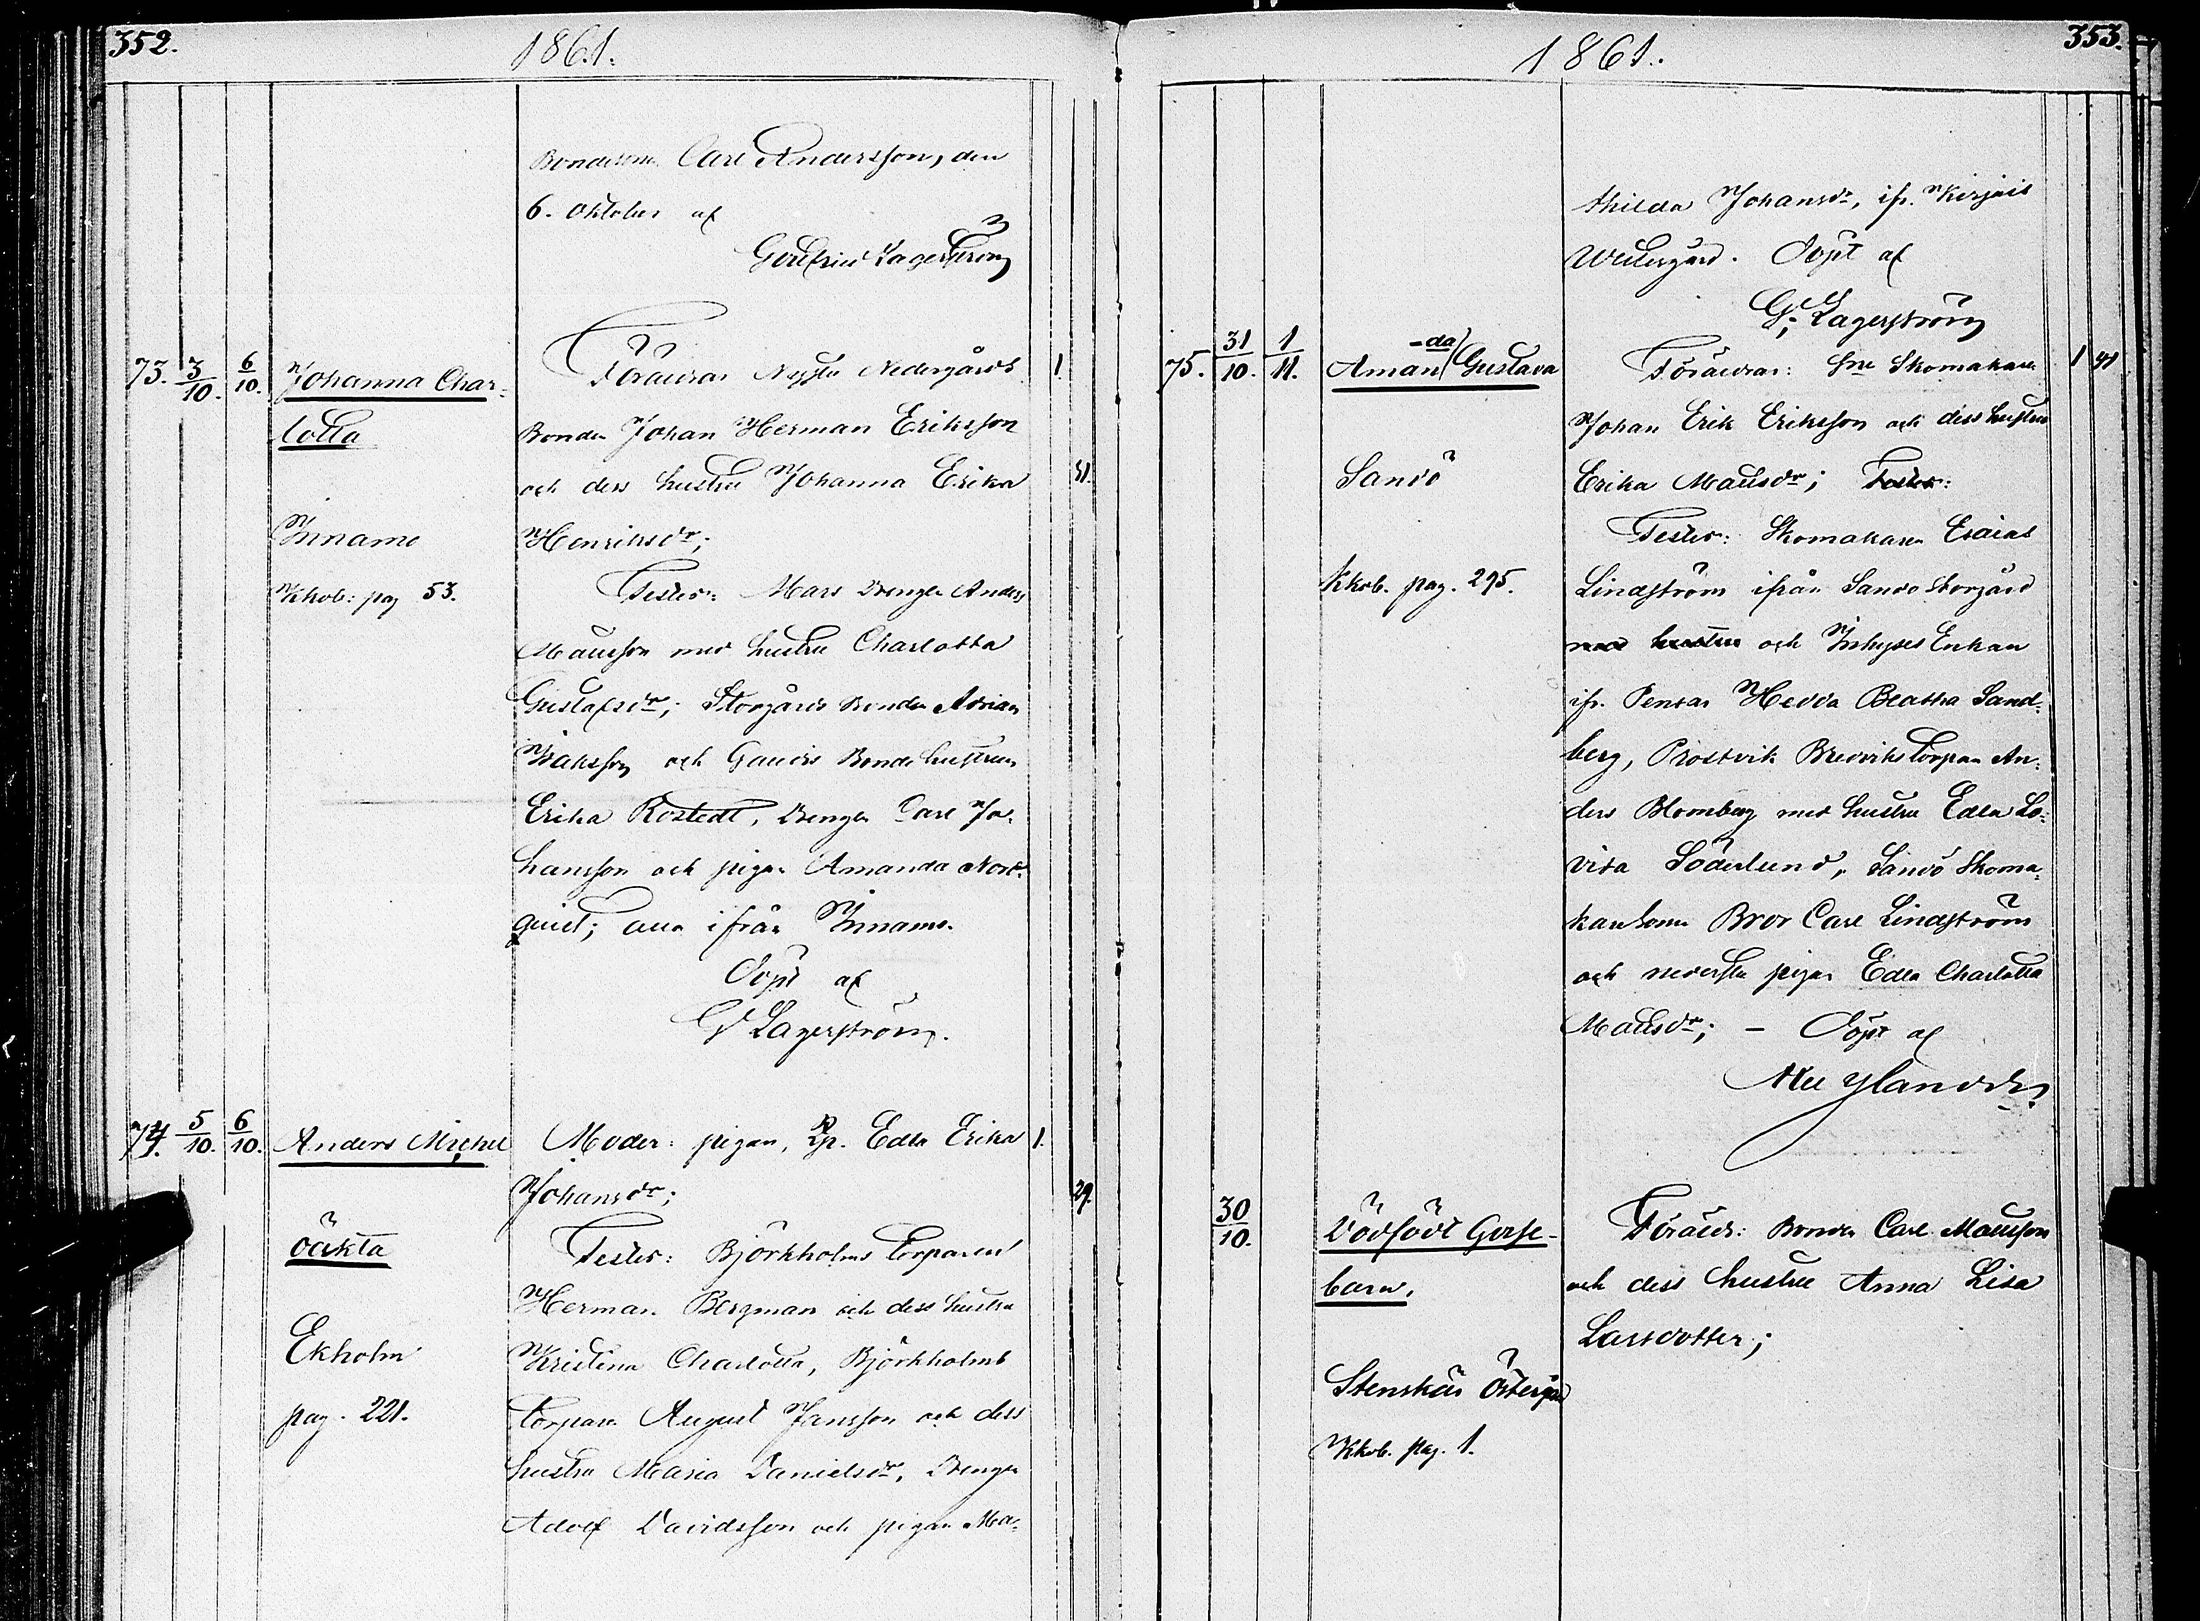 352.
1861.
Bondesonen Carl Andersson, den
6. Oktober af
Gottfried Lagerström
73. 3/10. 6/10. Johanna Char-
lotta
Iniamo
Kkob: pag 53.
Föräldrar Nedergårds 1.
Bonden Johan Herman Eriksson
och dess hustru Johanna Erika 31.
Henriksdr;
Testes: Mats Drengen Anders
Mattsson med hustru Charlotta
Gustafsdr; Storgårds Bonden Adrian
Isaksson och Bondehustrun
Erika Rostedt, Drengen Carl Jo-
hansson och pigan Amanda Nord-
quist; alla ifrån Iniamo.
Döpt af
G Lagerström.
74. 5/10. 6/10. Anders Michel
oäkta
Ekholm
pag. 221.
Moder: pigan, Edla Erika 1.
Johansdr; 29.
Testes: Björkholms Torparen
Herman Bergman och dess hustru
Kristina Charlotta, Björkholms
torparen August Jansson och dess
hustru Maria Danielsdr, Drengen
Adolf Davidsson och pigan Ma-
353.
1861.
thilda Johansdr, ifr. Kirjais
Westergård. Döpt af
G. Lagerström
75. 31/10. 1/11. Aman-da Gustava
Sandö
Kkob. pag. 295.
Föräldrar: Skomakaren 1 41
Johan Erik Eriksson och dess hustru
Erika Mattsdr; Testes:
Testes: Skomakaren Esaias
Lindström ifrån Sandö Storgård
med hustru och Inhyses Enkan
ifr. Pensar Hedda Beatha Sand-
berg, Prostvik Bredviks torparen An-
ders Blomberg med hustru Edla Lo-
visa Söderlund, Sandö Skoma-
karesonen Bror Carl Lindström
och pigan Edla Charlotta
Mattsdr; – Döpt af
Ylander
30/10. Dödfödt Gosse-
barn.
Stenskär Östergård
Kkob. pag. 1.
Föräldr: Bonden Carl Mattsson
och dess hustru Anna Lisa
Larsdotter;